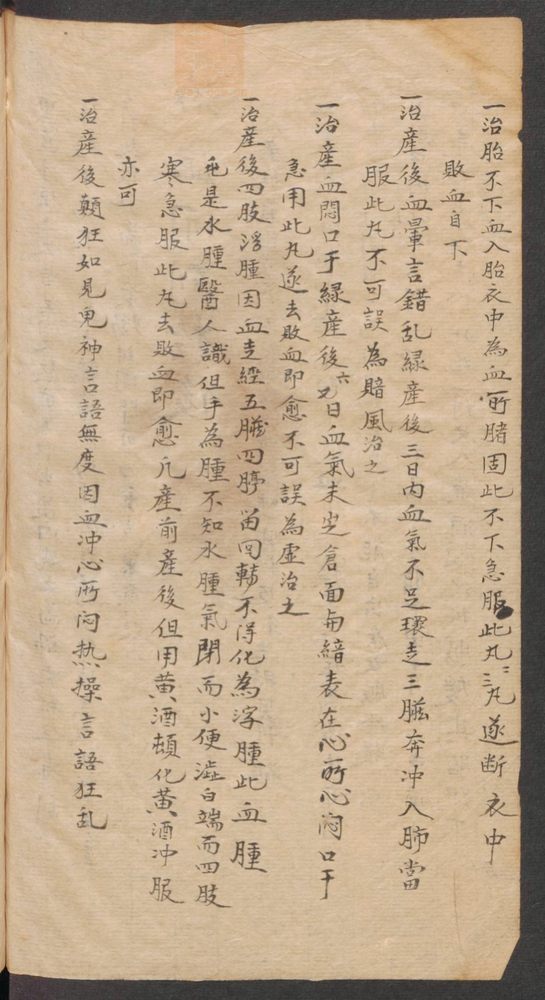 一治胎不下血入胎衣中為血所賭固此不下急服此丸二三丸遂断衣中
敗血自下
一治産後血暈言錯乱緑産後三日内血氣不足環走三臟奔冲入肺當
服此丸不可誤為賠風治之
一治産血悶口干緑産後六七日血氣未定倉面与緒表在心所心悶口干
急用此丸遂去敗血即愈不可誤為虚治之
一治産後四肢浮腫因血走經五臓四停留回轉不得化為浮腫此血腫
乇是水腫醫人識但手為腫不知水腫氣閉而小便澁白端而四肢
寒急服此丸去敗血即愈凢産前産後但用黄酒頓化黄酒冲服
亦可
一治産後顛狂如見鬼神言語無度因血冲心所悶热操言語狂乱